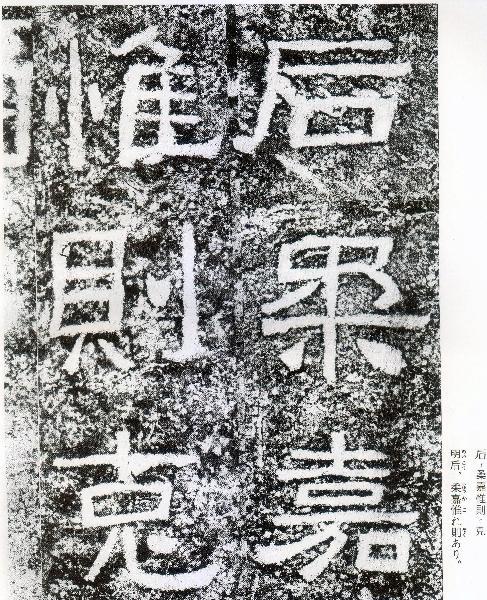 后柔嘉
惟則克
后柔嘉惟則克
明后、柔嘉惟れ則あり。